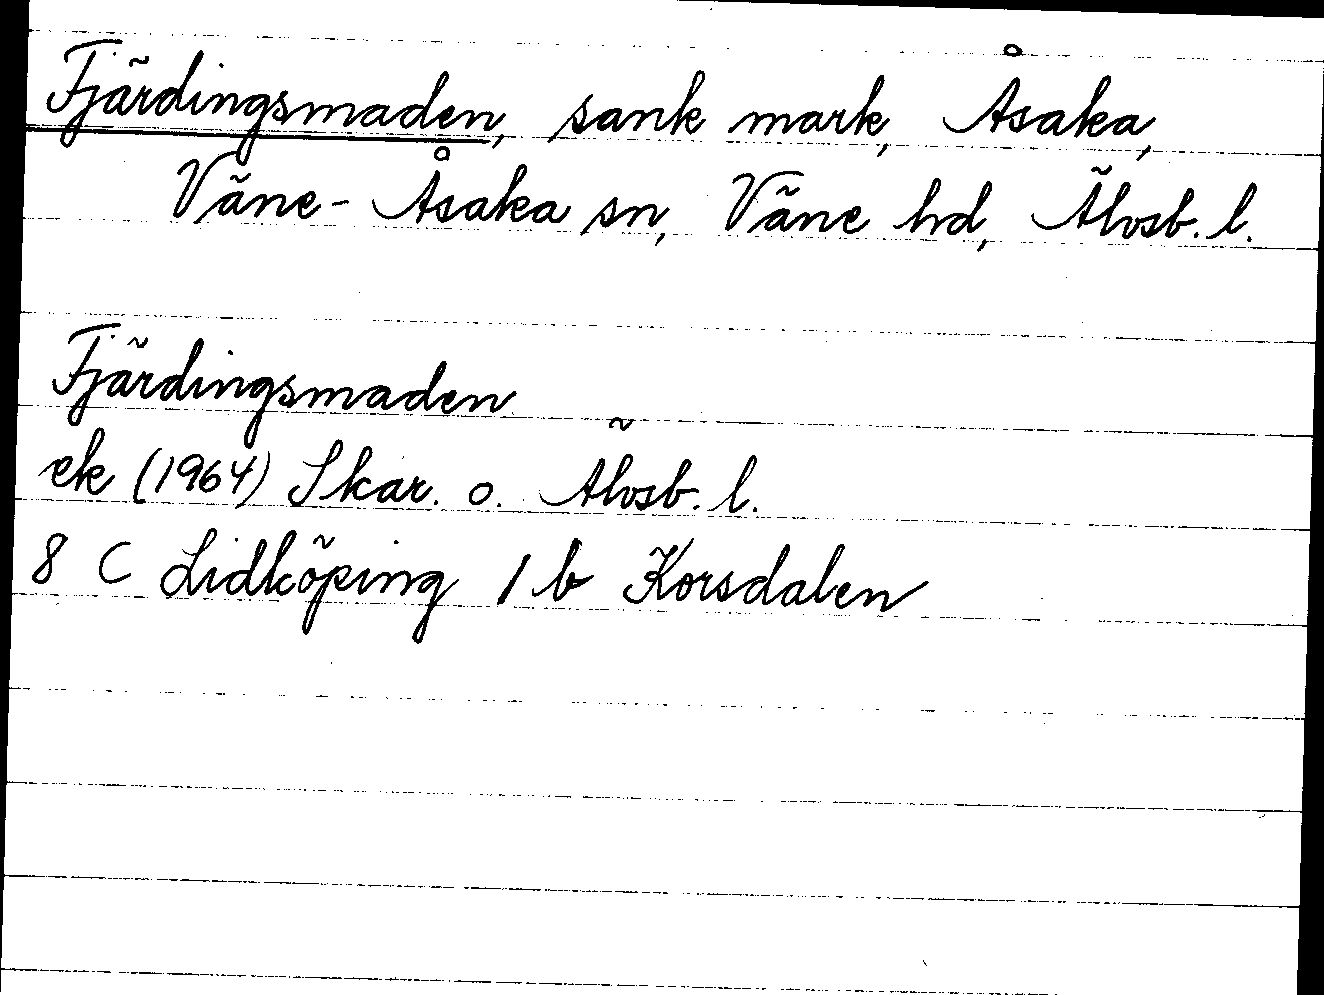 Fjärdingsmaden, sank mark, Åsaka,
Väne-Åsaka sn, Väne hd, Älvsb. l.
Fjärdingsmaden
ek (1964) Skar. o. Älvsb. l.
8 C Lidköping 1 b Korsdalen